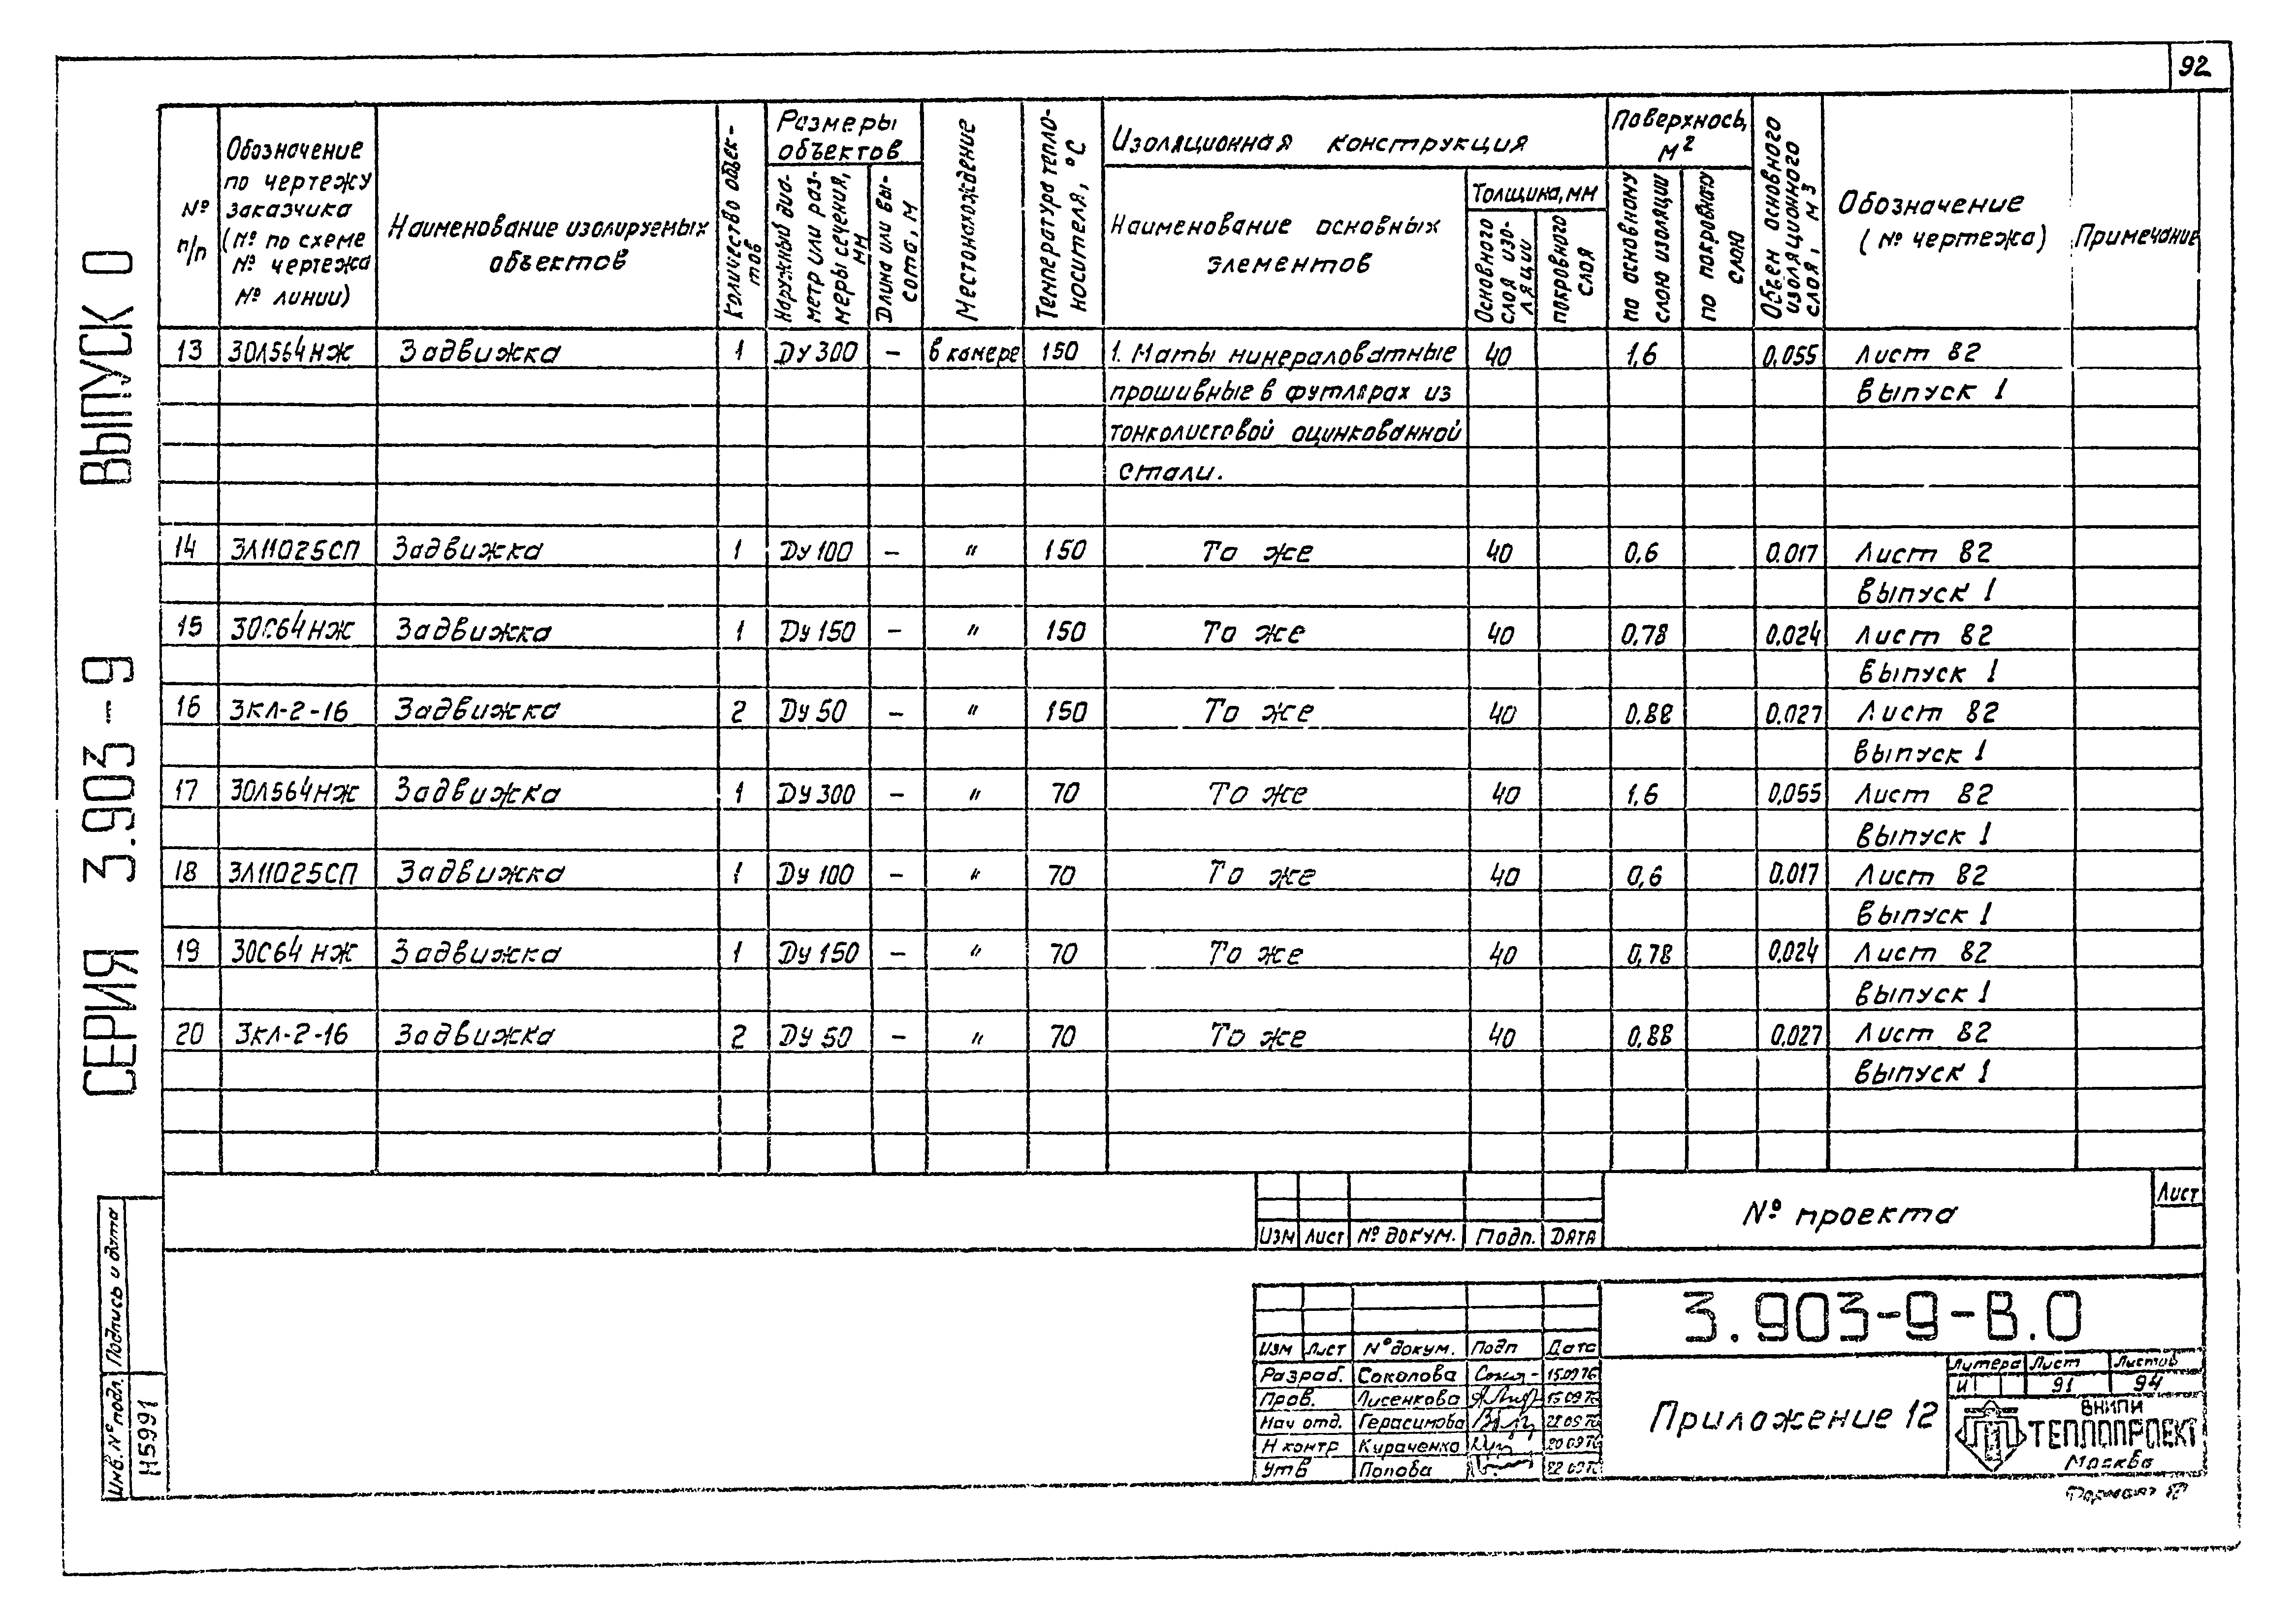 92
СЕРИЯ 3.903-9 ВЫПУСК 0
№ п/п
Обозначение
по чертежу
заказчика
(№ по схеме
№ чертежа
№ линии)
Наименование изолируемых
объектов
Количество объек-
тов
Размеры
объектов
Наружный диа-
метр или раз-
меры сечения,
мм
Длина или вы-
сота, м
Местонахождение
Температура тепло-
носителя, °С
Изоляционная конструкция
Наименование основных
элементов
Толщина, мм
Основного
слоя изо-
ляции
покровного
слоя
Поверхнось,
м²
по основному
слою изоляции
по покровному
слою
Объем основного
изоляционного
слоя, м3
Обозначение
(№ чертежа)
Примечание
13 30Л564НЖ Задвижка 1 Ду 300 – в камере 150 1. Маты минераловатные 40 1,6 0,055 Лист 82
прошивные в футлярах из Выпуск 1
тонколистовой оцинкованной
стали.
14 3Л11025СП Задвижка 1 Ду 100 – " 150 То же 40 0,6 0.017 Лист 82
Выпуск 1
15 30С64НЖ Задвижка 1 Ду 150 – " 150 То же 40 0,78 0.024 Лист 82
Выпуск 1
16 3КЛ-2-16 Задвижка 2 Ду 50 – " 150 То же 40 0,88 0.027 Лист 82
Выпуск 1
17 30Л564НЖ Задвижка 1 Ду 300 – " 70 То же 40 1,6 0,055 Лист 82
Выпуск 1
18 3Л11025СП Задвижка 1 Ду 100 – " 70 То же 40 0,6 0,017 Лист 82
Выпуск 1
19 30С64 НЖ Задвижка 1 Ду 150 – " 70 То же 40 0,78 0,024 Лист 82
Выпуск 1
20 3КЛ-2-16 Задвижка 2 Ду 50 – " 70 То же 40 0,88 0,027 Лист 82
Выпуск 1
Изм Лист № докум. Подп. Дата
№ проекта
Лист
Подпись и дата
Инв. № подл.
Н5991
3.903-9-В.0
Изм Лист № докум. Подп Дата
Разраб. Соколова 15.09.76
Пров. Лисенкова 15 09 76
Нач отд. Герасимова
Н контр Кираченко 20 09 76
Утв Попова 22 09 76
Приложение 12
Литера Лист Листов
И 91 94
ВНИПИ
ТЕПЛОПРОЕКТ
Москва
Формат